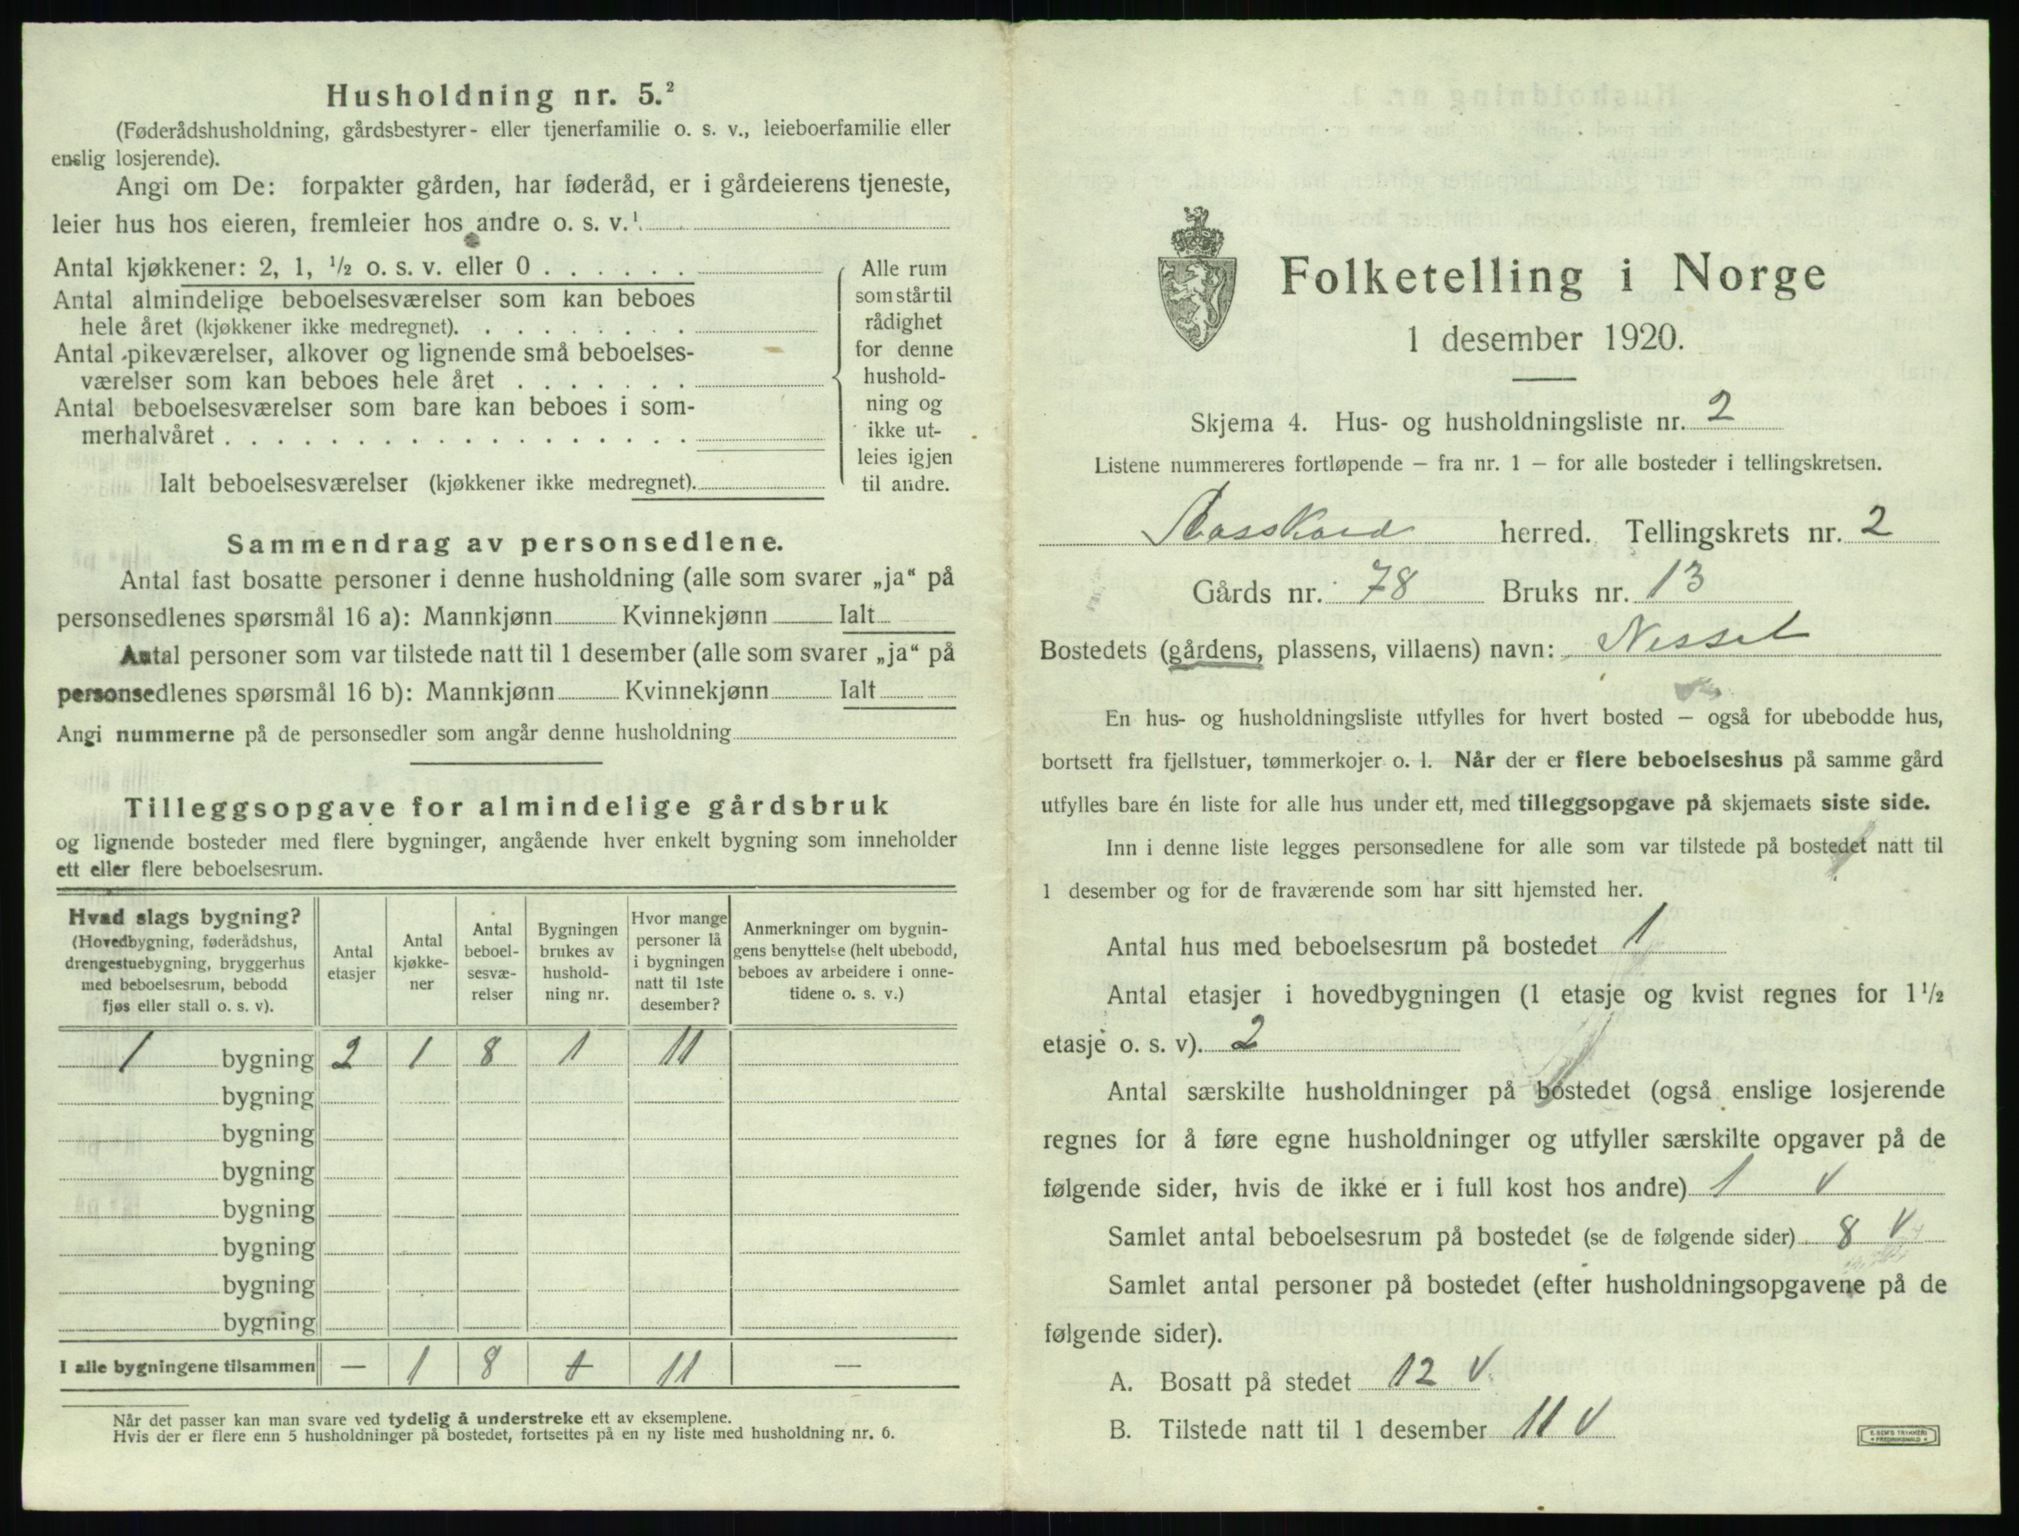 Husholdning nr. 5.²
(Føderådshusholdning, gårdsbestyrer- eller tjenerfamilie o. s. v., leieboerfamilie eller
enslig losjerende).
Angi om De: forpakter gården, har føderåd, er i gårdeierens tjeneste,
leier hus hos eieren, fremleier hos andre o. s. v.¹
Antal kjøkkener: 2, 1, ½ o. s. v. eller 0
Antal almindelige beboelsesværelser som kan beboes
hele året (kjøkkener ikke medregnet).
Antal pikeværelser, alkover og lignende små beboelses-
værelser som kan beboes hele året
Antal beboelsesværelser som bare kan beboes i som-
merhalvåret
Ialt beboelsesværelser (kjøkkener ikke medregnet).
Alle rum
som står til
rådighet
for denne
hushold-
ning og
ikke ut-
leies igjen
til andre.
Sammendrag av personsedlene.
Antal fast bosatte personer i denne husholdning (alle som svarer „ja“ på
personsedlenes spørsmål 16 a): Mannkjønn Kvinnekjønn Ialt
Antal personer som var tilstede natt til 1 desember (alle som svarer „ja“ på
personsedlenes spørsmål 16 b): Mannkjønn Kvinnekjønn Ialt
Angi nummerne på de personsedler som angår denne husholdning
Tilleggsopgave for almindelige gårdsbruk
og lignende bosteder med flere bygninger, angående hver enkelt bygning som inneholder
ett eller flere beboelsesrum.
Hvad slags bygning?
(Hovedbygning, føderådshus,
drengestuebygning, bryggerhus
med beboelsesrum, bebodd
fjøs eller stall o. s. v).
Antal
etasjer
Antal
kjøkke-
ner
Antal
beboel-
sesvæ-
relser
Bygningen
brukes av
hushold-
ning nr.
Hvor mange
personer lå
i bygningen
natt til 1ste
desember?
Anmerkninger om bygnin-
gens benyttelse (helt ubebodd,
beboes av arbeidere i onne-
tidene o. s. v.)
1 bygning 2 1 8 1 11
bygning
bygning
bygning
bygning
bygning
bygning
bygning
I alle bygningene tilsammen — 1 8 + 11 —
Når det passer kan man svare ved tydelig å understreke ett av eksemplene.
Hvis der er flere enn 5 husholdninger på bostedet, fortsettes på en ny liste med husholdning nr. 6.
Folketelling i Norge
1 desember 1920.
Skjema 4. Hus- og husholdningsliste nr. 2
Listene nummereres fortløpende – fra nr. 1 – for alle bosteder i tellingskretsen.
herred. Tellingskrets nr. 2
Gårds nr. 78 Bruks nr. 13
Bostedets (gårdens, plassens, villaens) navn: Nesset
En hus- og husholdningsliste utfylles for hvert bosted – også for ubebodde hus,
bortsett fra fjellstuer, tømmerkojer o. l. Når der er flere beboelseshus på samme gård
utfylles bare én liste for alle hus under ett, med tilleggsopgave på skjemaets siste side.
Inn i denne liste legges personsedlene for alle som var tilstede på bostedet natt til
1 desember og for de fraværende som har sitt hjemsted her.
Antal hus med beboelsesrum på bostedet 1
Antal etasjer i hovedbygningen (1 etasje og kvist regnes for 1½
etasje o. s. v). 2
Antal særskilte husholdninger på bostedet (også enslige losjerende
regnes for å føre egne husholdninger og utfyller særskilte opgaver på de
følgende sider, hvis de ikke er i full kost hos andre) 1 v
Samlet antal beboelsesrum på bostedet (se de følgende sider) 8 v
Samlet antal personer på bostedet (efter husholdningsopgavene på de
følgende sider).
A. Bosatt på stedet 12 v
B. Tilstede natt til 1 desember 11 v
E. SEM'S TRYKKERI
FREDRIKSHALD